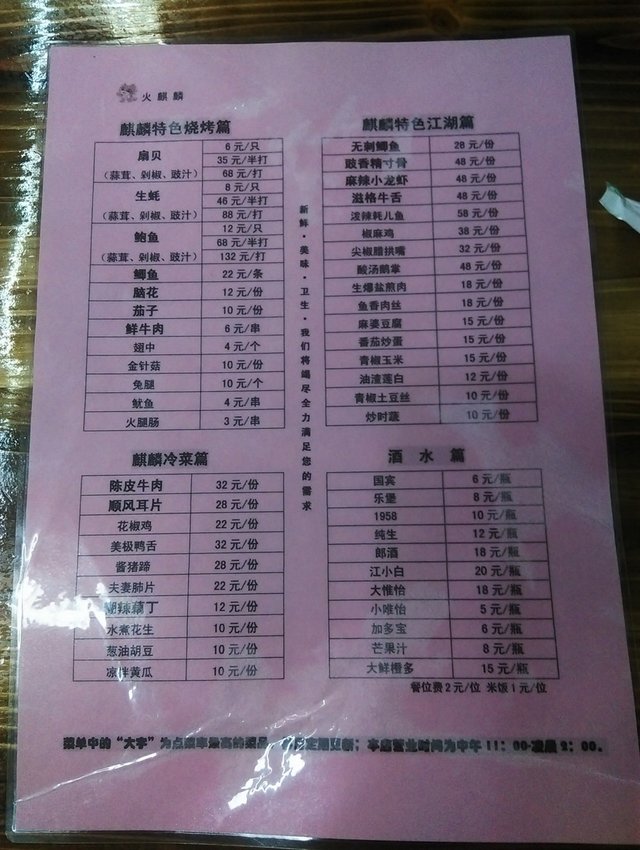 火麒麟
麒麟特色烧烤篇
扇贝 6元/只
35元/半打
(蒜茸、剁椒、豉汁) 68元/打
生蚝 8元/只
46元/半打
(蒜茸、剁椒、豉汁) 88元/打
鲍鱼 12元/只
68元/半打
(蒜茸、剁椒、豉汁) 132元/打
鲫鱼 22元/条
脑花 12元/份
茄子 10元/份
鲜牛肉 6元/串
翅中 4元/个
金针菇 10元/份
兔腿 10元/个
鱿鱼 4元/串
火腿肠 3元/串
麒麟特色江湖篇
无刺鲫鱼 28元/份
豉香精寸骨 48元/份
麻辣小龙虾 48元/份
滋格牛舌 48元/份
泼辣耗儿鱼 58元/份
椒麻鸡 38元/份
尖椒腊拱嘴 32元/份
酸汤鹅掌 48元/份
生爆盐煎肉 18元/份
鱼香肉丝 18元/份
麻婆豆腐 15元/份
番茄炒蛋 15元/份
青椒玉米 15元/份
油渣莲白 12元/份
青椒土豆丝 10元/份
炒时蔬 10元/份
新鲜·美味·卫生·我们将竭尽全力满足您的需求
麒麟冷菜篇
陈皮牛肉 32元/份
顺风耳片 28元/份
花椒鸡 22元/份
美极鸭舌 32元/份
酱猪蹄 28元/份
夫妻肺片 22元/份
辣藕丁 12元/份
水煮花生 10元/份
葱油胡豆 10元/份
凉拌黄瓜 10元/份
酒水篇
国宾 6元/瓶
乐堡 8元/瓶
1958 10元/瓶
纯生 12元/瓶
郎酒 18元/瓶
江小白 20元/瓶
大惟怡 18元/瓶
小唯怡 5元/瓶
加多宝 6元/瓶
芒果汁 8元/瓶
大鲜橙多 15元/瓶
餐位费2元/位 米饭1元/位
菜单中的“大字”为点菜率最高的菜品 定期更新；本店营业时间为中午11：00-凌晨2：00.